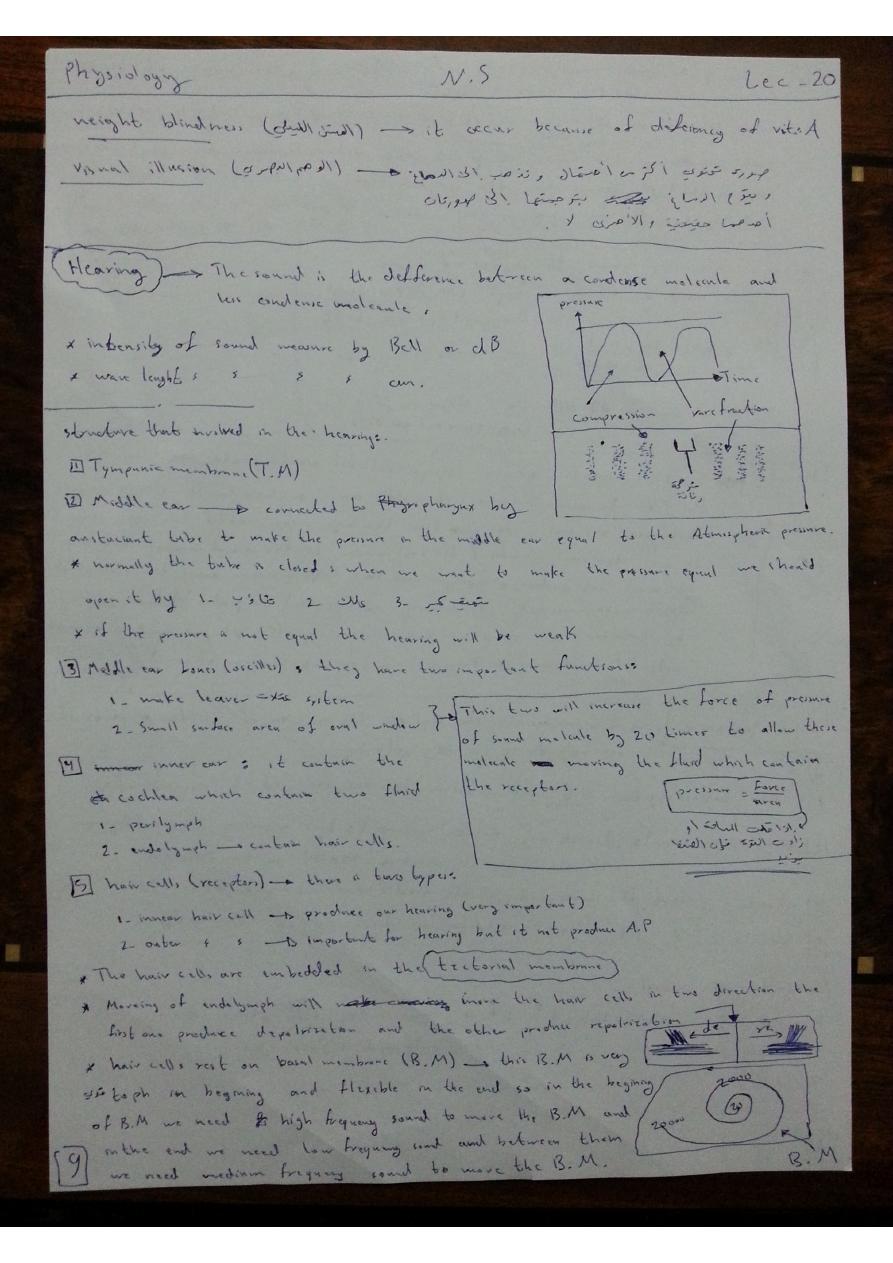 Physiology N.S Lec - 20
neight blindness (العشى الليلي) → it occur because of defeciency of vit: A
visual illusion (الوهم البصري) → صورة تحتوي أكثر من أحتمال و تذهب الى الدماغ
و يقوم الدماغ بترجمتها الى صورتان
أحدهما حقيقية والأخرى لا .
Hearing → The sound is the defference between a condense molecule and
less condense molecule .
pressure
* intensity of sound measure by Bell or dB
Time
* wave lenght s s s s cm.
compression rarefraction
structure that involved in the hearing:
1 Tympanic membrane (T.M)
شوكة رنانة
2 Middle ear → connected to pharynx by
anstuciant tube to make the pressure in the middle ear equal to the Atmospheric pressure.
* normally the tube is closed s when we want to make the pressure equal we should
open it by 1- تثاؤب 2- علك 3-
* if the pressure is not equal the hearing will be weak
3 Middle ear bones (oscilles) s they have two important functions:
1- make leaver عتلة system
2- Small surface area of oval window
This two will increase the force of pressure
of sound molcule by 20 times to allow these
molecule moving the fluid which contain
the receptors.
pressure = force / area
اذا قلت المساحة او
زادت القوة فإن الضغط
يزيد
4 inner ear : it contain the
cochlea which contain two fluid
1- perilymph
2- endolymph → contain hair cells.
5 hair cells (receptors) → there is two types:
1- innear hair cell → produce our hearing (very important)
2- outer s s → important for hearing but it not produce A.P
* The hair cells are embedded in the tectorial membrane
* Moveing of endolymph will move the hair cells in two direction the
first one produce depolrization and the other produce repolrization
de re
* hair cells rest on basal membrane (B.M) → this B.M is very
toph in begining and flexible in the end so in the begining
of B.M we need high frequency sound to move the B.M and
in the end we need low frequncy sond and between them
we need medium frequncy sound to move the B.M.
2000
20
20000
B.M
9